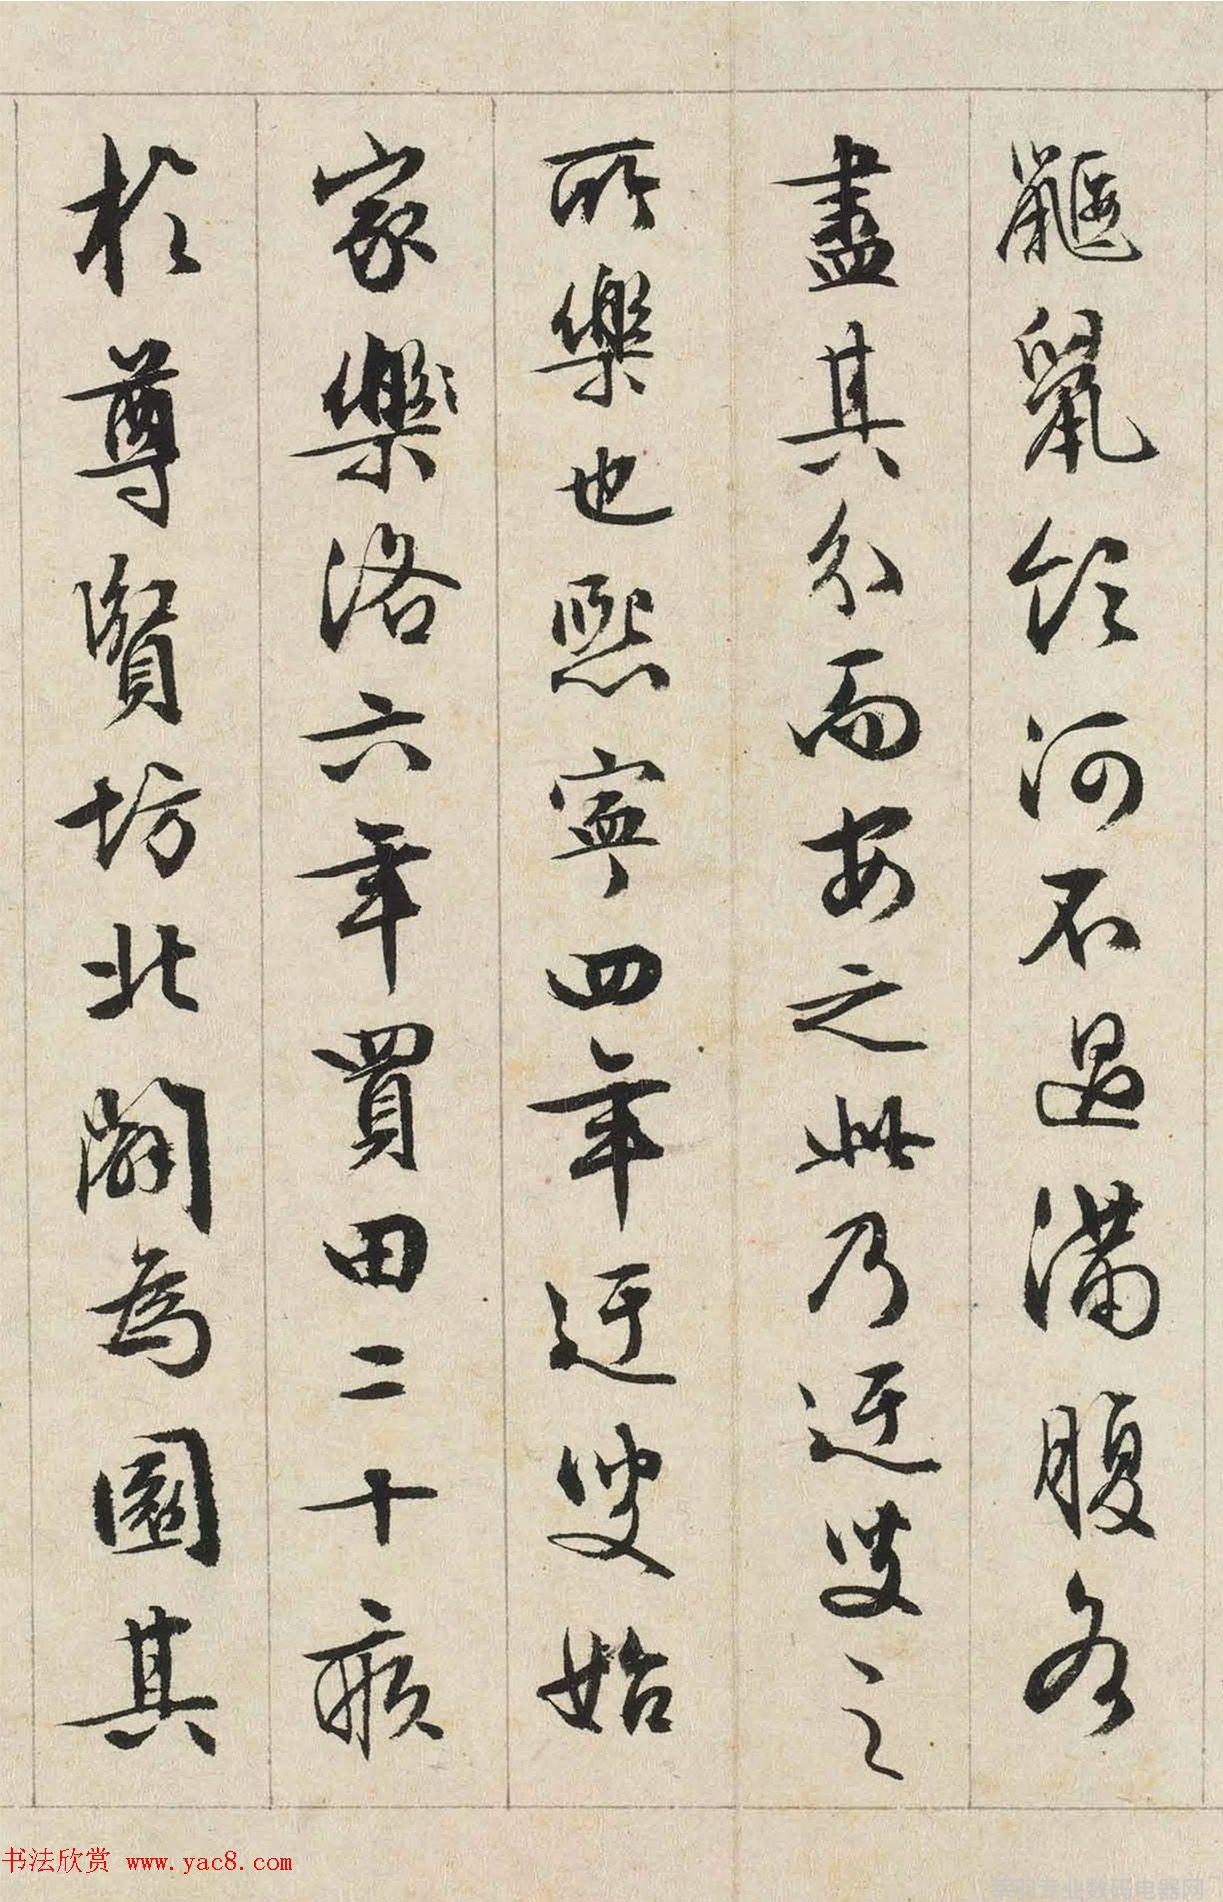 鼴鼠飲河不過滿腹各
盡其分而安之此乃迂叟之
所樂也熙寧四年迂叟始
家樂洛六年買田二十畝
於尊賢坊北闢為園其
书法欣赏 www.yac8.com